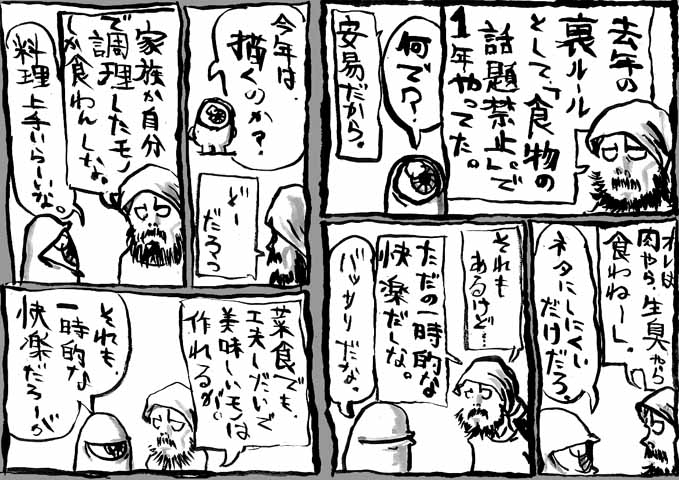 去年の
裏ルール
として、「食物の
話題禁止」で
1年やってた。
何で？
安易だから。
オレは
肉やら、生臭やら
食わねーし。
ネタにしにくい
だけだろ。
それも
あるけど…
ただの一時的な
快楽だしな。
バッサリだな。
今年は、
描くのか？
どー
だろっ
家族か自分
で調理したモノ
しか食わんしな。
料理上手いらしいな。
菜食でも、
工夫しだいで
美味しいモノは
作れるが。
それも、
一時的な
快楽だろーが